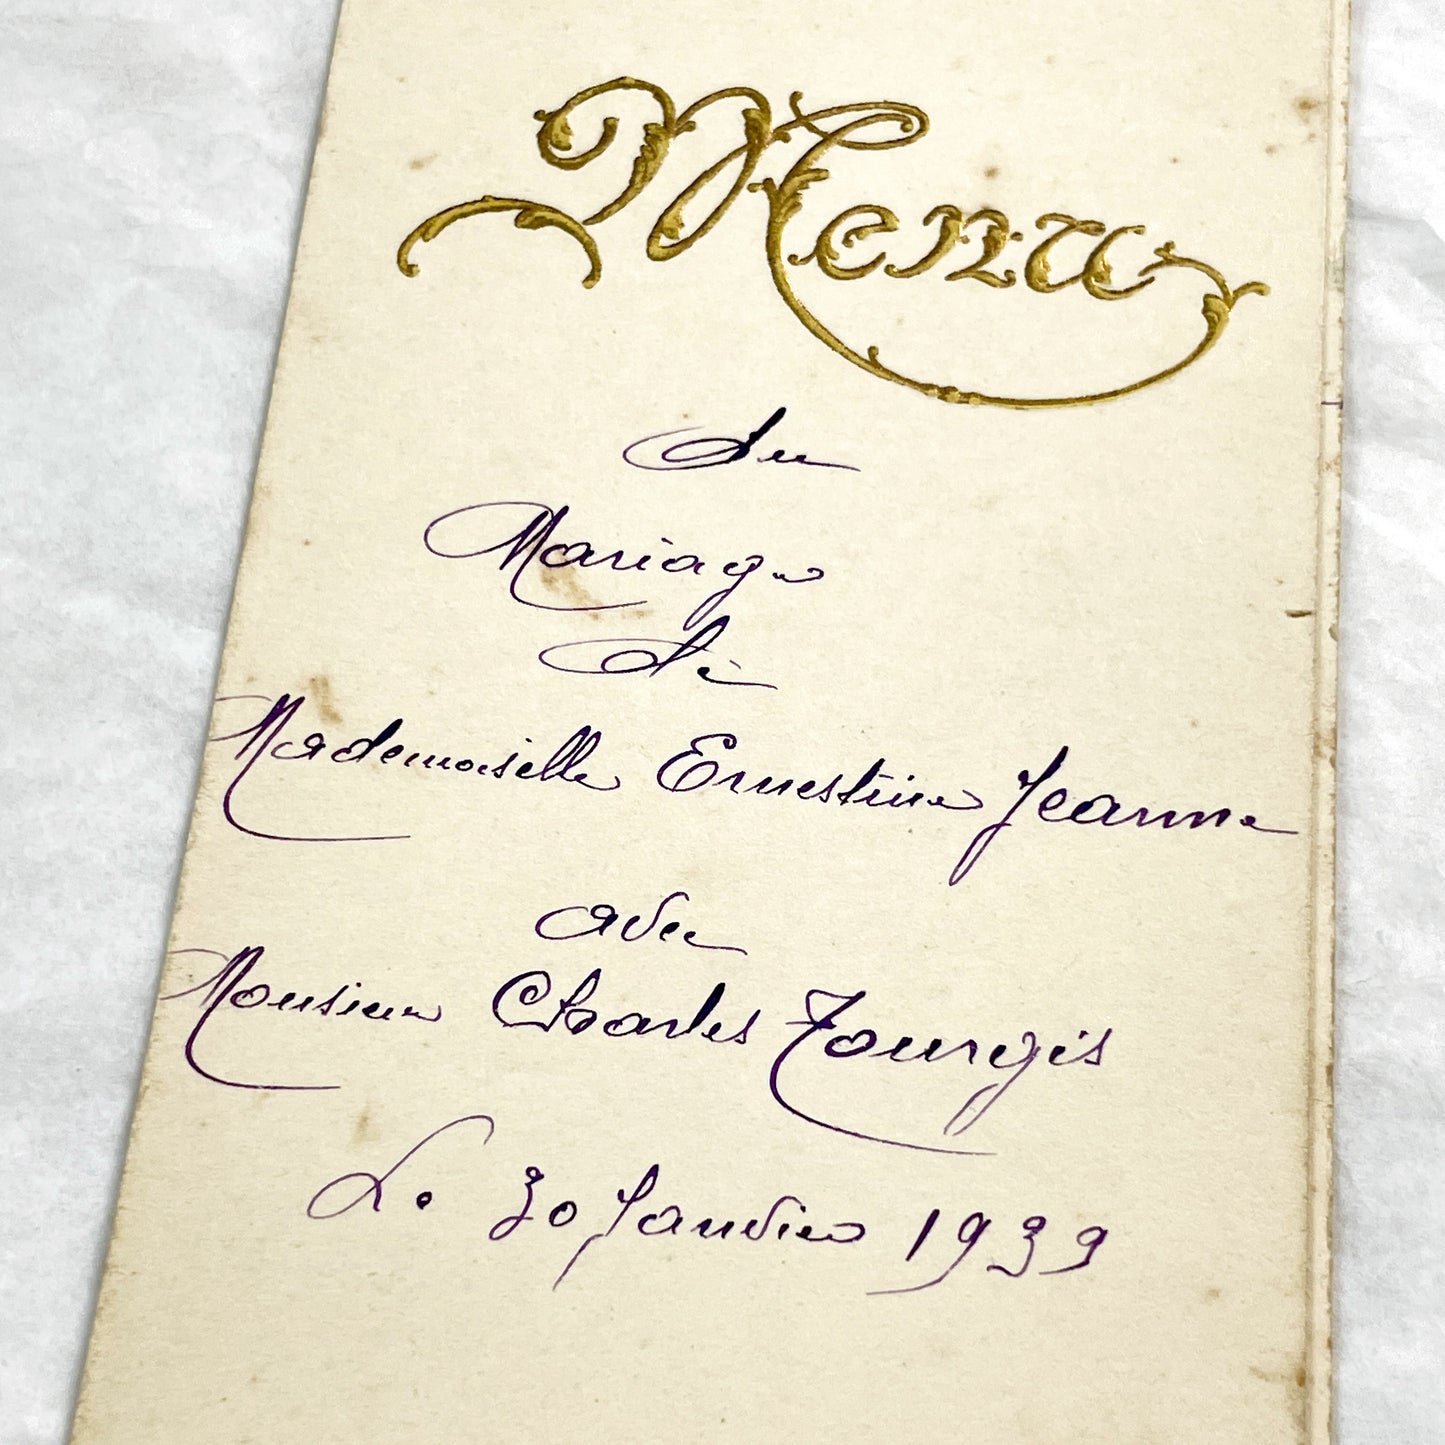 Menu
du
Mariage
de
Mademoiselle Ernestine Jeanne
avec
Monsieur Charles Tourgis
Le 30 Janvier 1939